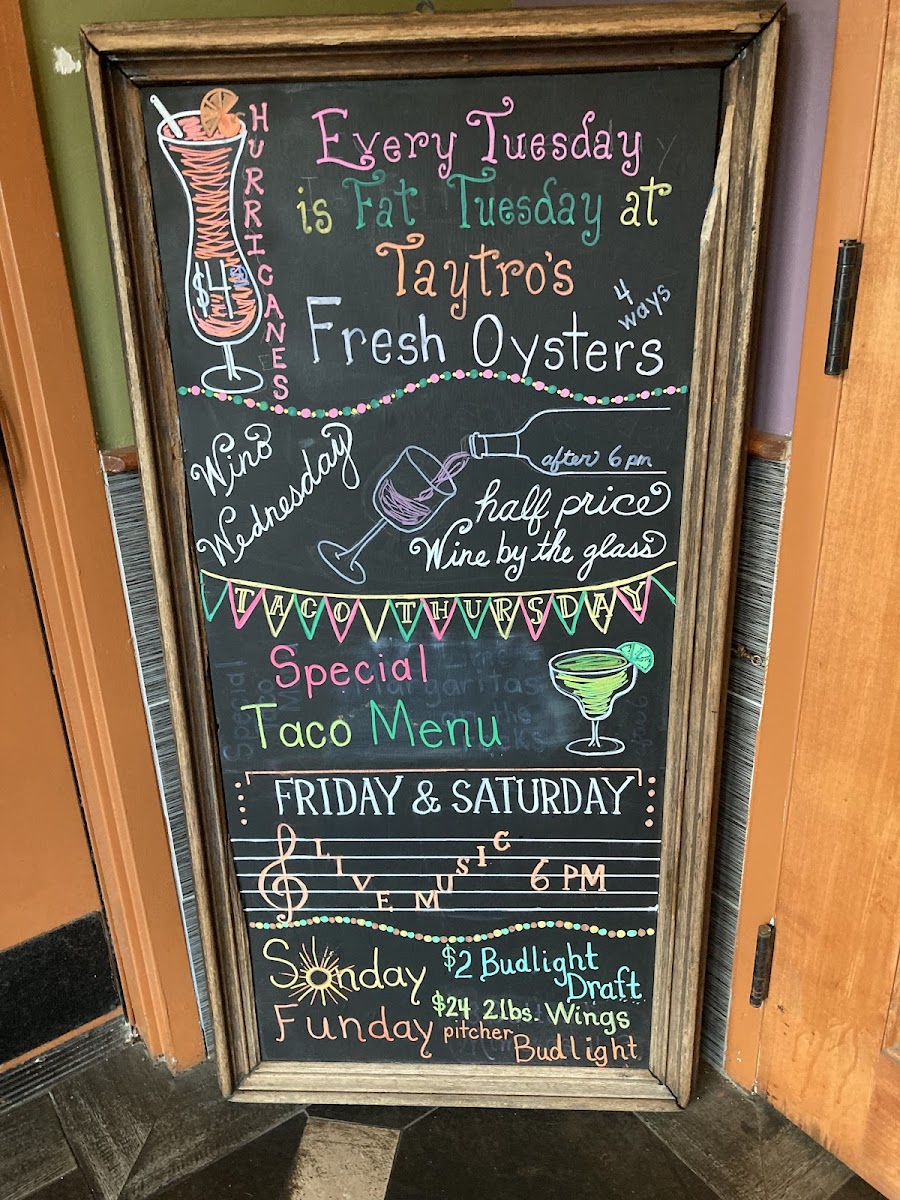 HURRICANES
$4
Every Tuesday
is Fat Tuesday at
Taytro's
Fresh Oysters
4 ways
Wino
Wednesday
after 6 pm
half price
Wine by the glass
TACO THURSDAY
Special
Taco Menu
FRIDAY & SATURDAY
LIVE MUSIC
6 PM
Sonday
Funday
$2 Budlight
Draft
$24 2lbs. Wings
pitcher
Budlight